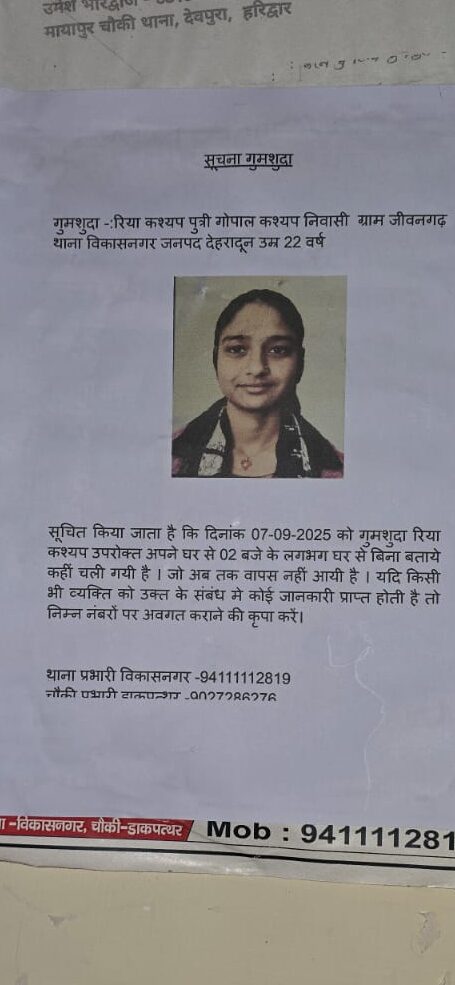 उमेश भारद्वाज
मायापुर चौकी थाना, देवपुरा, हरिद्वार
सूचना गुमशुदा
गुमशुदा -:रिया कश्यप पुत्री गोपाल कश्यप निवासी ग्राम जीवनगढ़
थाना विकासनगर जनपद देहरादून उम्र 22 वर्ष
सूचित किया जाता है कि दिनांक 07-09-2025 को गुमशुदा रिया
कश्यप उपरोक्त अपने घर से 02 बजे के लगभग घर से बिना बताये
कहीं चली गयी है । जो अब तक वापस नहीं आयी है । यदि किसी
भी व्यक्ति को उक्त के संबंध मे कोई जानकारी प्राप्त होती है तो
निम्न नंबरों पर अवगत कराने की कृपा करें।
थाना प्रभारी विकासनगर -94111112819
चौकी प्रभारी डाकपत्थर -9027286276
-विकासनगर, चौकी-डाकपत्थर
Mob : 941111281